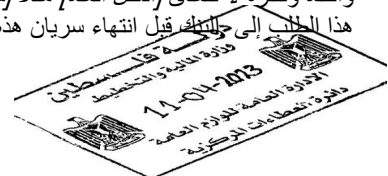 هذا الطلب إلى البنك قبل انتهاء سريان هذه
دولة فلسطين
وزارة المالية والتخطيط
11-04-2023
الادارة العامة للوازم العامة
دائرة العطاءات المركزية